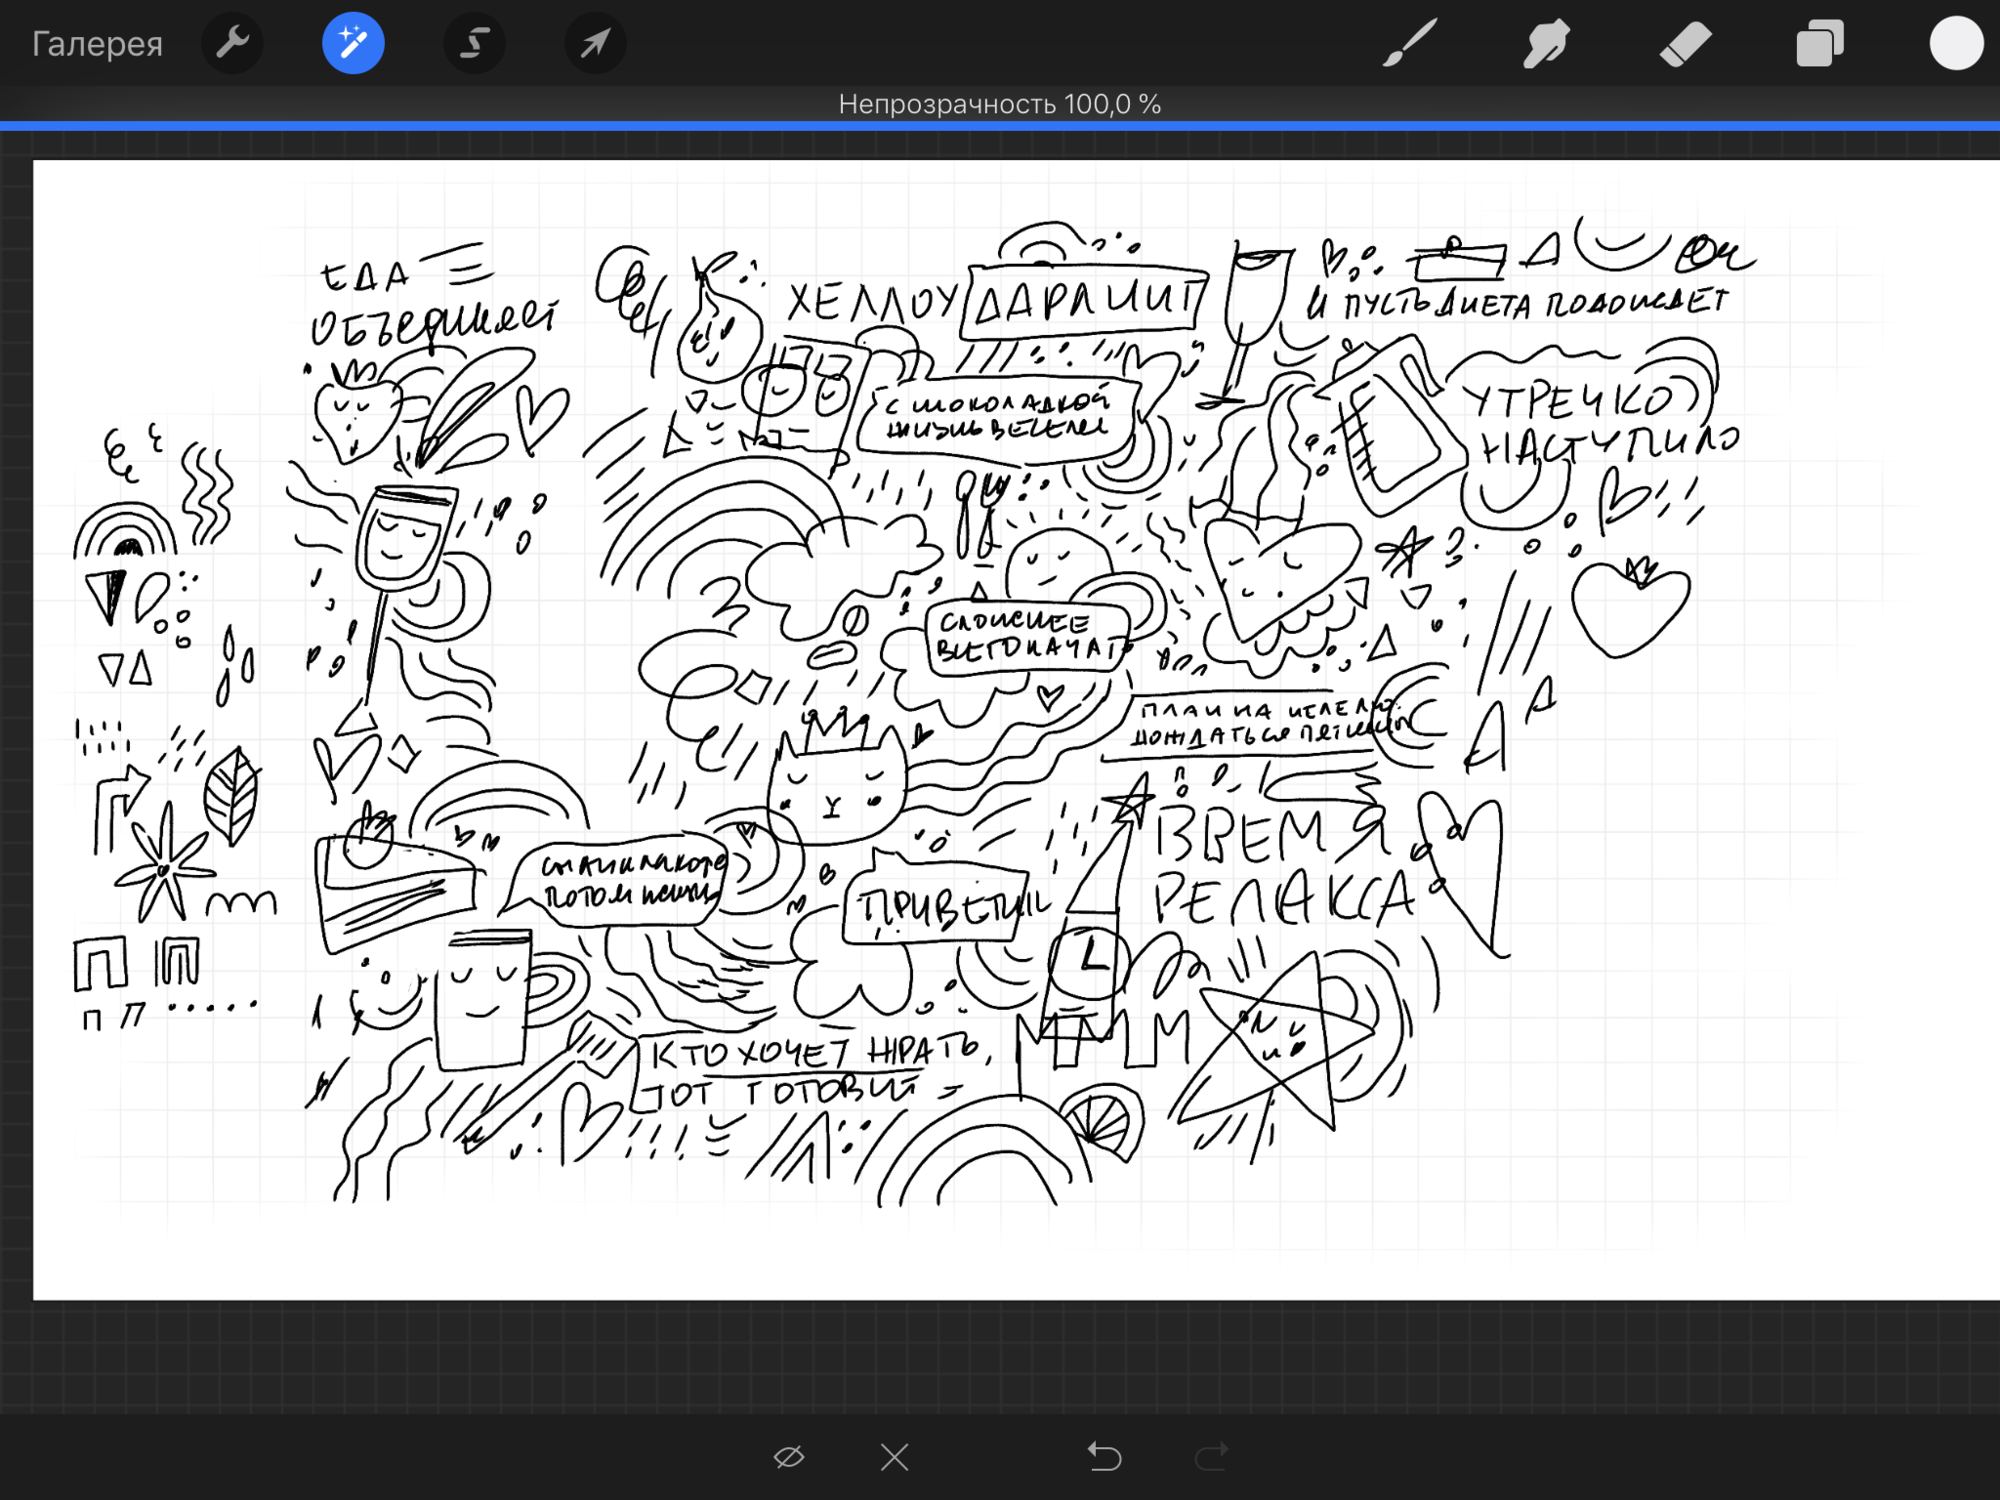 Галерея
Непрозрачность 100,0 %
ЕДА
ОБЪЕДИНЯЕТ
ХЕЛЛОУ ДАРЛИНГ
И ПУСТЬ ДИЕТА ПОДОЖДЕТ
С ШОКОЛАДКОЙ
ЖИЗНЬ ВЕСЕЛЕЙ
УТРЕЧКО
НАСТУПИЛО
СЛОЖНЕЕ
ВСЕГО НАЧАТЬ
ПЛАН НА НЕДЕЛЮ:
ДОЖДАТЬСЯ ПЯТНИЦЫ
ВРЕМЯ
РЕЛАКСА
СНАЧАЛА КОФЕ
ПОТОМ
ПРИВЕТИК
КТО ХОЧЕТ ЖРАТЬ,
ТОТ ГОТОВИТ